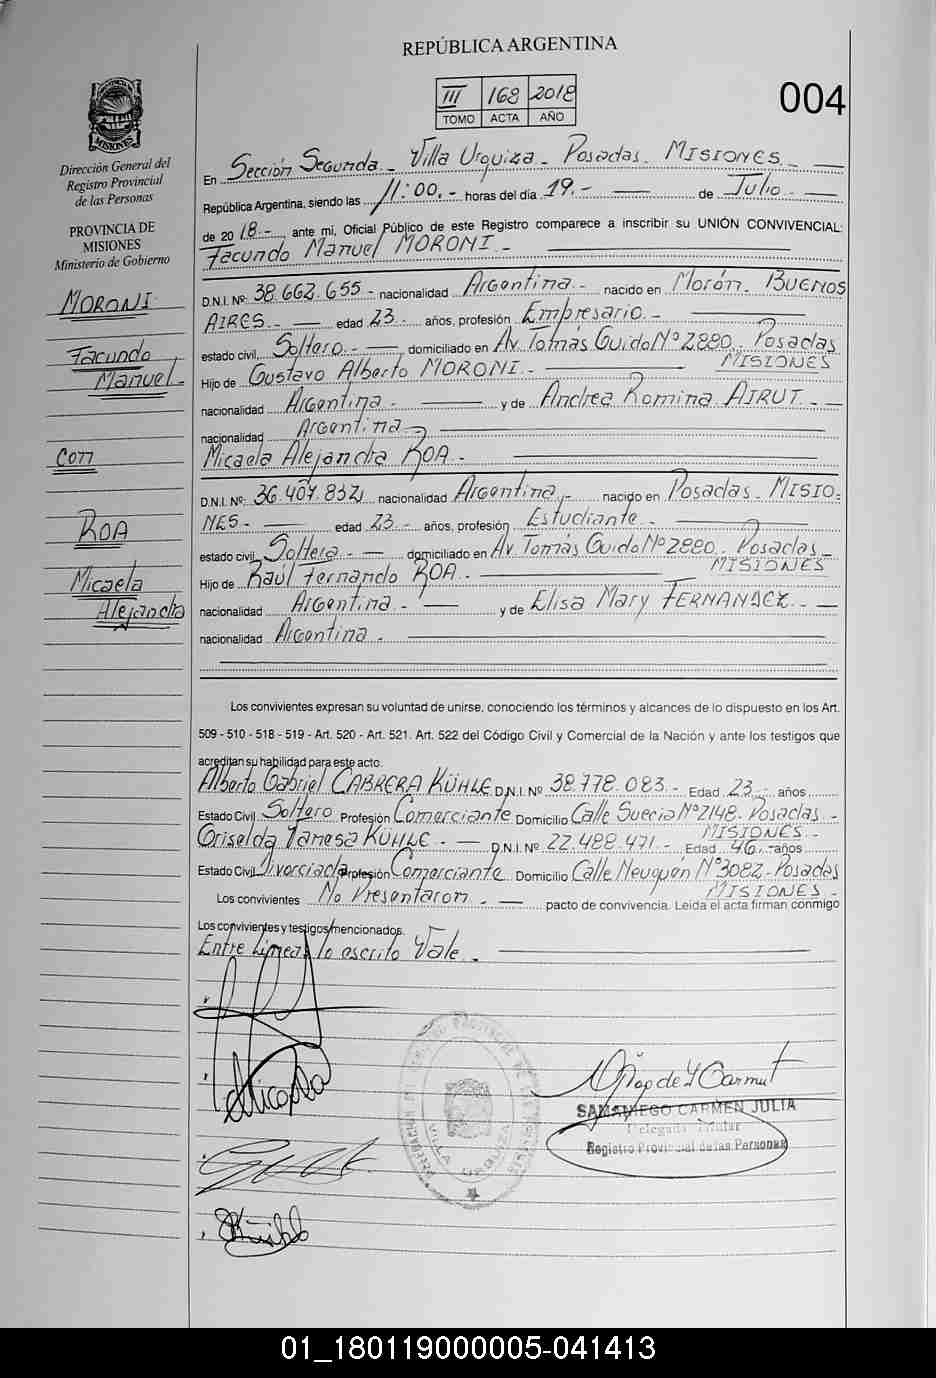 REPÚBLICA ARGENTINA
III 168 2018
TOMO ACTA AÑO
004
MISIONES
Dirección General del
Registro Provincial
de las Personas
PROVINCIA DE
MISIONES
Ministerio de Gobierno
MORONI
Facundo
Manuel
con
ROA
Micaela
Alejandra
En Sección Segunda - Villa Urquiza - Posadas - MISIONES -
República Argentina, siendo las 11:00.- horas del día 19.- de Julio -
de 2018 - ante mi, Oficial Público de este Registro comparece a inscribir su UNIÓN CONVIVENCIAL:
Facundo Manuel MORONI -
D.N.I. Nº: 38.662.655 - nacionalidad Argentina - nacido en Morón - BUENOS
AIRES. - edad 23 - años, profesión Empresario. -
estado civil, Soltero. - domiciliado en Av. Tomás Guido Nº 2880. Posadas
MISIONES
Hijo de Gustavo Alberto MORONI. -
nacionalidad Argentina - y de Andrea Romina AIRUT - -
nacionalidad Argentina -
Micaela Alejandra ROA -
D.N.I. Nº: 36.407.832 nacionalidad Argentina - nacido en Posadas - MISIO=
NES - edad 23 - años, profesión Estudiante -
estado civil Soltera - domiciliado en Av. Tomás Guido Nº 2880. Posadas -
MISIONES
Hijo de Raúl Fernando ROA -
nacionalidad Argentina - y de Elisa Mary FERNANDEZ - -
nacionalidad Argentina -
Los convivientes expresan su voluntad de unirse, conociendo los términos y alcances de lo dispuesto en los Art.
509 - 510 - 518 - 519 - Art. 520 - Art. 521. Art. 522 del Código Civil y Comercial de la Nación y ante los testigos que
acreditan su habilidad para este acto.
Alberto Gabriel CABRERA KÜHLE D.N.I. Nº 38.778.083 - Edad 23 - años
Estado Civil Soltero Profesión Comerciante Domicilio Calle Suecia Nº 2148 - Posadas -
MISIONES -
Griselda Vanesa KÜHLE - D.N.I. Nº 22.488.471 - Edad 46 - años
Estado Civil Divorciada Profesión Comerciante Domicilio Calle Neuquén Nº 3082 - Posadas
MISIONES -
Los convivientes No Presentaron - pacto de convivencia. Leída el acta firman conmigo
Los convivientes y testigos mencionados.
Entre Lineas lo escrito Vale -
SAMANIEGO CARMEN JULIA
Delegada Titular
Registro Provincial de las Personas
VILLA URQUIZA
01_180119000005-041413